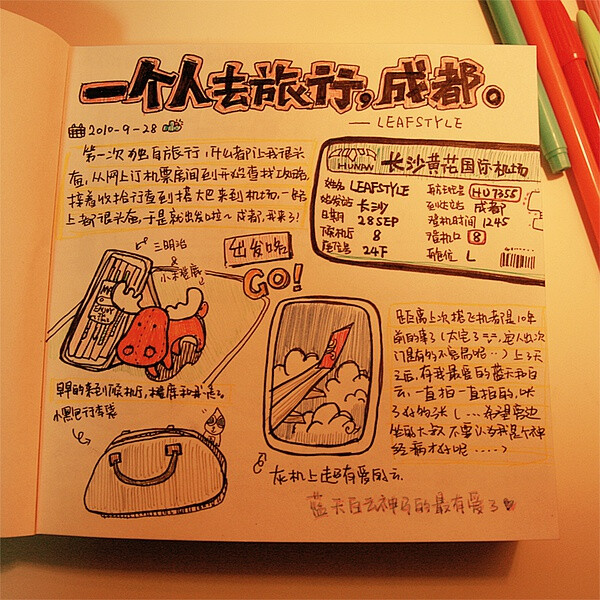 一个人去旅行，成都。
— LEAFSTYLE
2010-9-28
第一次独自旅行，什么都让我很兴
奋，从网上订机票房间到开始查找攻略，
接着收拾行李到搭大巴来到机场，一路
上都很兴奋，于是就出发啦~成都，我来了！
HUNAN
长沙黄花国际机场
姓名 LEAFSTYLE
航班号 HU7355
始发站 长沙
到达站 成都
日期 28SEP
登机时间 1245
候机厅 8
登机口 8
座位号 24F
舱位 L
三明治
&
小米登鹿
出发咯
GO!
MY
ENJOY
距离上次搭飞机都是10年
前的事了
上了天
之后，有我最爱的蓝天和白
云，一直拍一直拍的，
了好多张（…希望旁边
坐的大叔不要认为我是个神
经病才好呢……）
早早的来到候机厅，
小黑的行李袋
灰机上超有爱的云。
蓝天白云神马的最有爱了♥